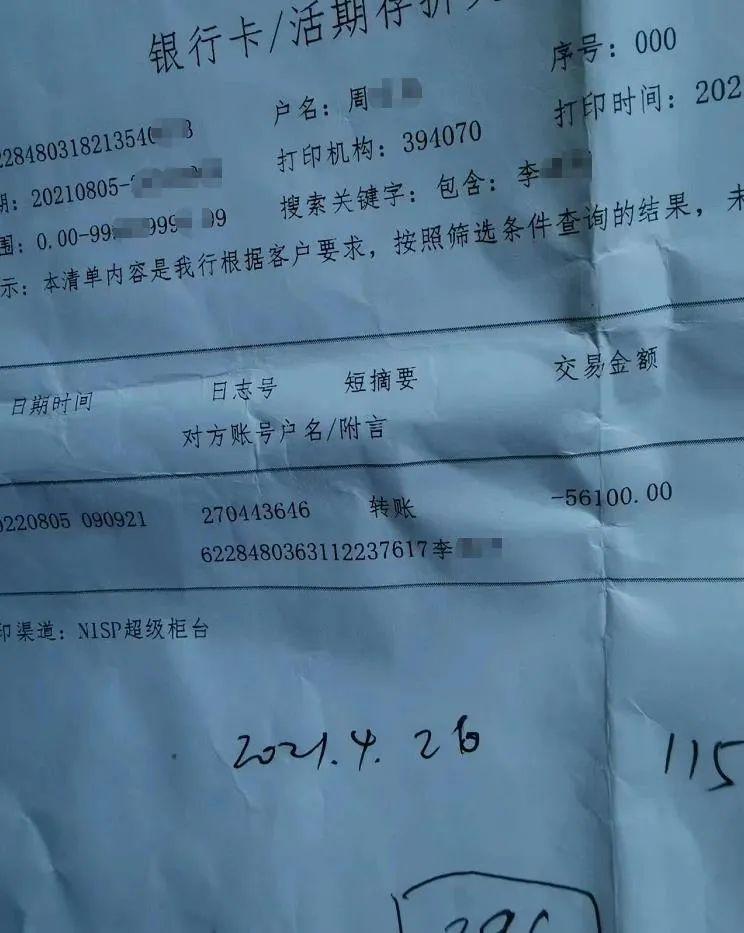 银行卡/活期存折
序号：000
户名：周
打印时间：202
228480318213540 8
打印机构：394070
期：20210805-
搜索关键字：包含：李
围：0.00-99 999 99
示：本清单内容是我行根据客户要求，按照筛选条件查询的结果，未
日期时间 日志号 短摘要 交易金额
对方账号户名/附言
0220805 090921 270443646 转账 -56100.00
6228480363112237617李
印渠道：N1SP超级柜台
2021.4.26
115